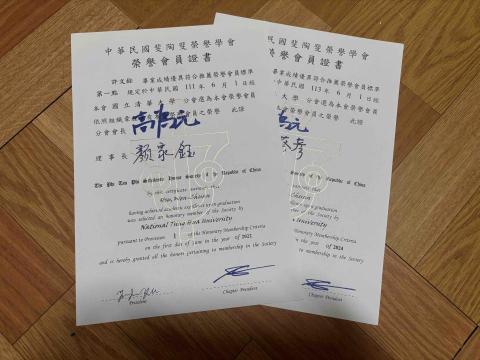 中華民國斐陶斐榮譽學會
榮譽會員證書
許文錦 畢業成績優異符合推薦榮譽會員標準
第一點 規定於中華民國 111 年 6 月 1 日經
本會 國立清華大學 分會選為本會榮譽會員
依照組織章 之榮譽 此證
分會會長
理事長 顏家鈺
The Phi Tau Phi Scholastic Honor Society of the Republic of China
By this certificate certifies that
having achieved academic excellence upon graduation
was selected an honorary member of the Society by
National Tsing Hua University
pursuant to Provision of the Honorary Membership Criteria
on the first day of June in the year of 2022
and is hereby granted all the honors pertaining to membership in the Society
President
Chapter President
民國斐陶斐榮譽學會
譽會員證書
畢業成績優異符合推薦榮譽會員標準
中華民國 113 年 6 月 1 日經
大學 分會選為本會榮譽會員
之榮譽 此證
Republic of China
upon graduation
the Society by
University
Honorary Membership Criteria
the year of 2024
to membership in the Society
Chapter President